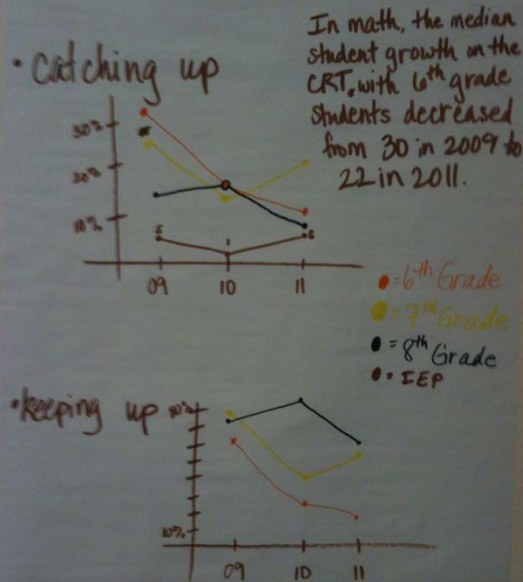 In math, the median
student growth on the
CRT, with 6th grade
students decreased
from 30 in 2009 to
22 in 2011.
• Catching up
30%
20%
10%
5
1
5
09 10 11
• = 6th Grade
• = 7th Grade
• = 8th Grade
• = IEP
• keeping up
10%
09 10 11